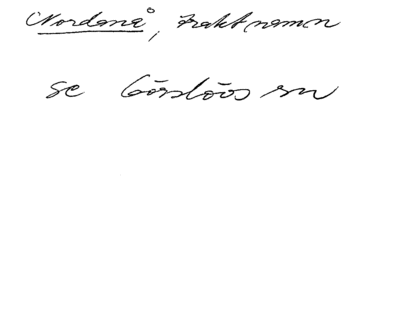 Nordanå, traktnamn
se Görslövs sn